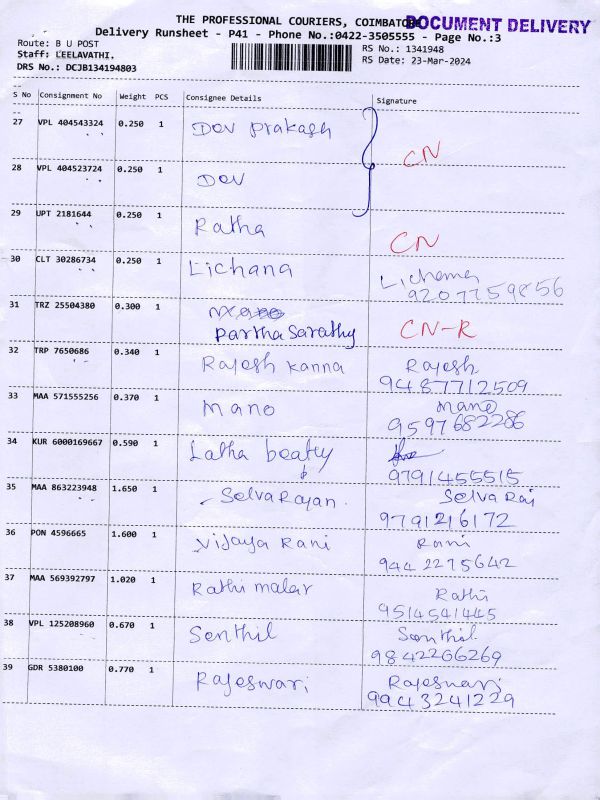 THE PROFESSIONAL COURIERS, COIMBATORE
DOCUMENT DELIVERY
Delivery Runsheet - P41 - Phone No.:0422-3505555 - Page No.:3
Route: B U POST
RS No.: 1341948
Staff: LEELAVATHI.
RS Date: 23-Mar-2024
DRS No.: DCJB134194803
S No Consignment No Weight PCS Consignee Details Signature
27 VPL 404543324 0.250 1 Dev prakash
CN
28 VPL 404523724 0.250 1 Dev
29 UPT 2181644 0.250 1 Ratha CN
30 CLT 30286734 0.250 1 Lichana Lichana
9207759856
31 TRZ 25504380 0.300 1
Partha Sarathy CN-R
32 TRP 7650686 0.340 1 Rajesh Kanna Rajesh
9487712509
33 MAA 571555256 0.370 1 Mano Mano
9597682286
34 KUR 6000169667 0.590 1 Latha beatty
9791455515
35 MAA 863223948 1.650 1 Selva Rajan. Selva Raj
9791216172
36 PON 4596665 1.600 1 Vijaya Rani Rani
9442275642
37 MAA 569392797 1.020 1 Rathi malar Rathi
9514541445
38 VPL 125208960 0.670 1 Senthil Senthil
9842266269
39 GDR 5380100 0.770 1 Rajeswari Rajeswari
9943241229